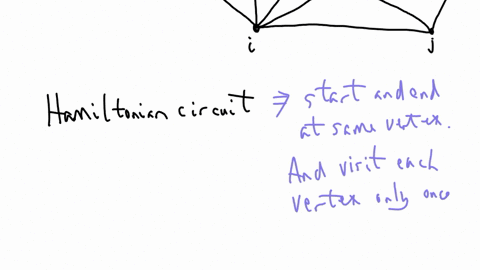 i j
Hamiltonian circuit ⇒ start and end
at same vertex.
And visit each
vertex only once